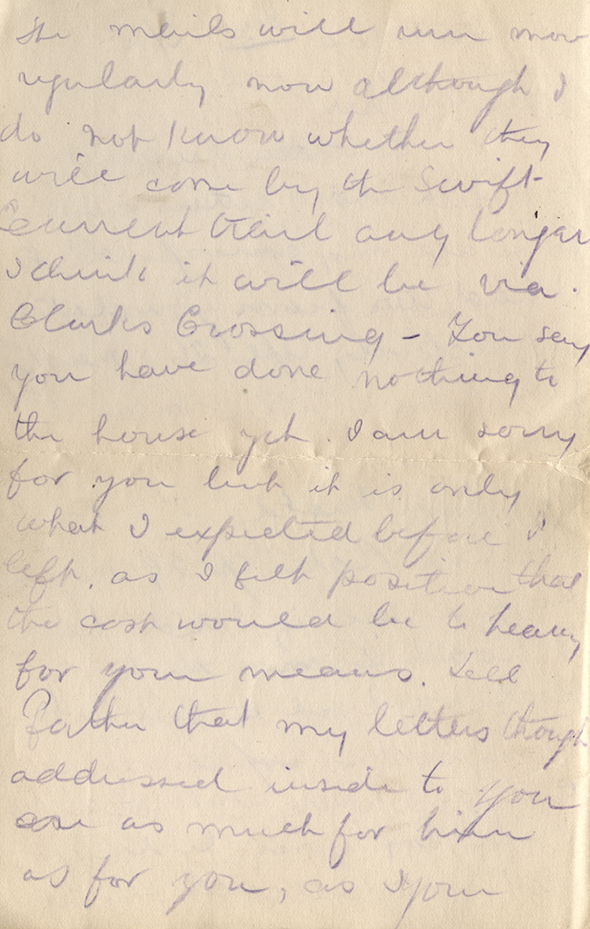 The mails will run more
regularly now although I
do not know whether they
will come by the Swift
Current trail any longer
I think it will be via
Clarks Crossing - You say
you have done nothing to
the house yet. I am sorry
for you but it is only
what I expected before I
left, as I felt positive that
the cost would be to heavy
for your means. Tell
Father that my letters though
addressed inside to you
are as much for him
as for you, as I